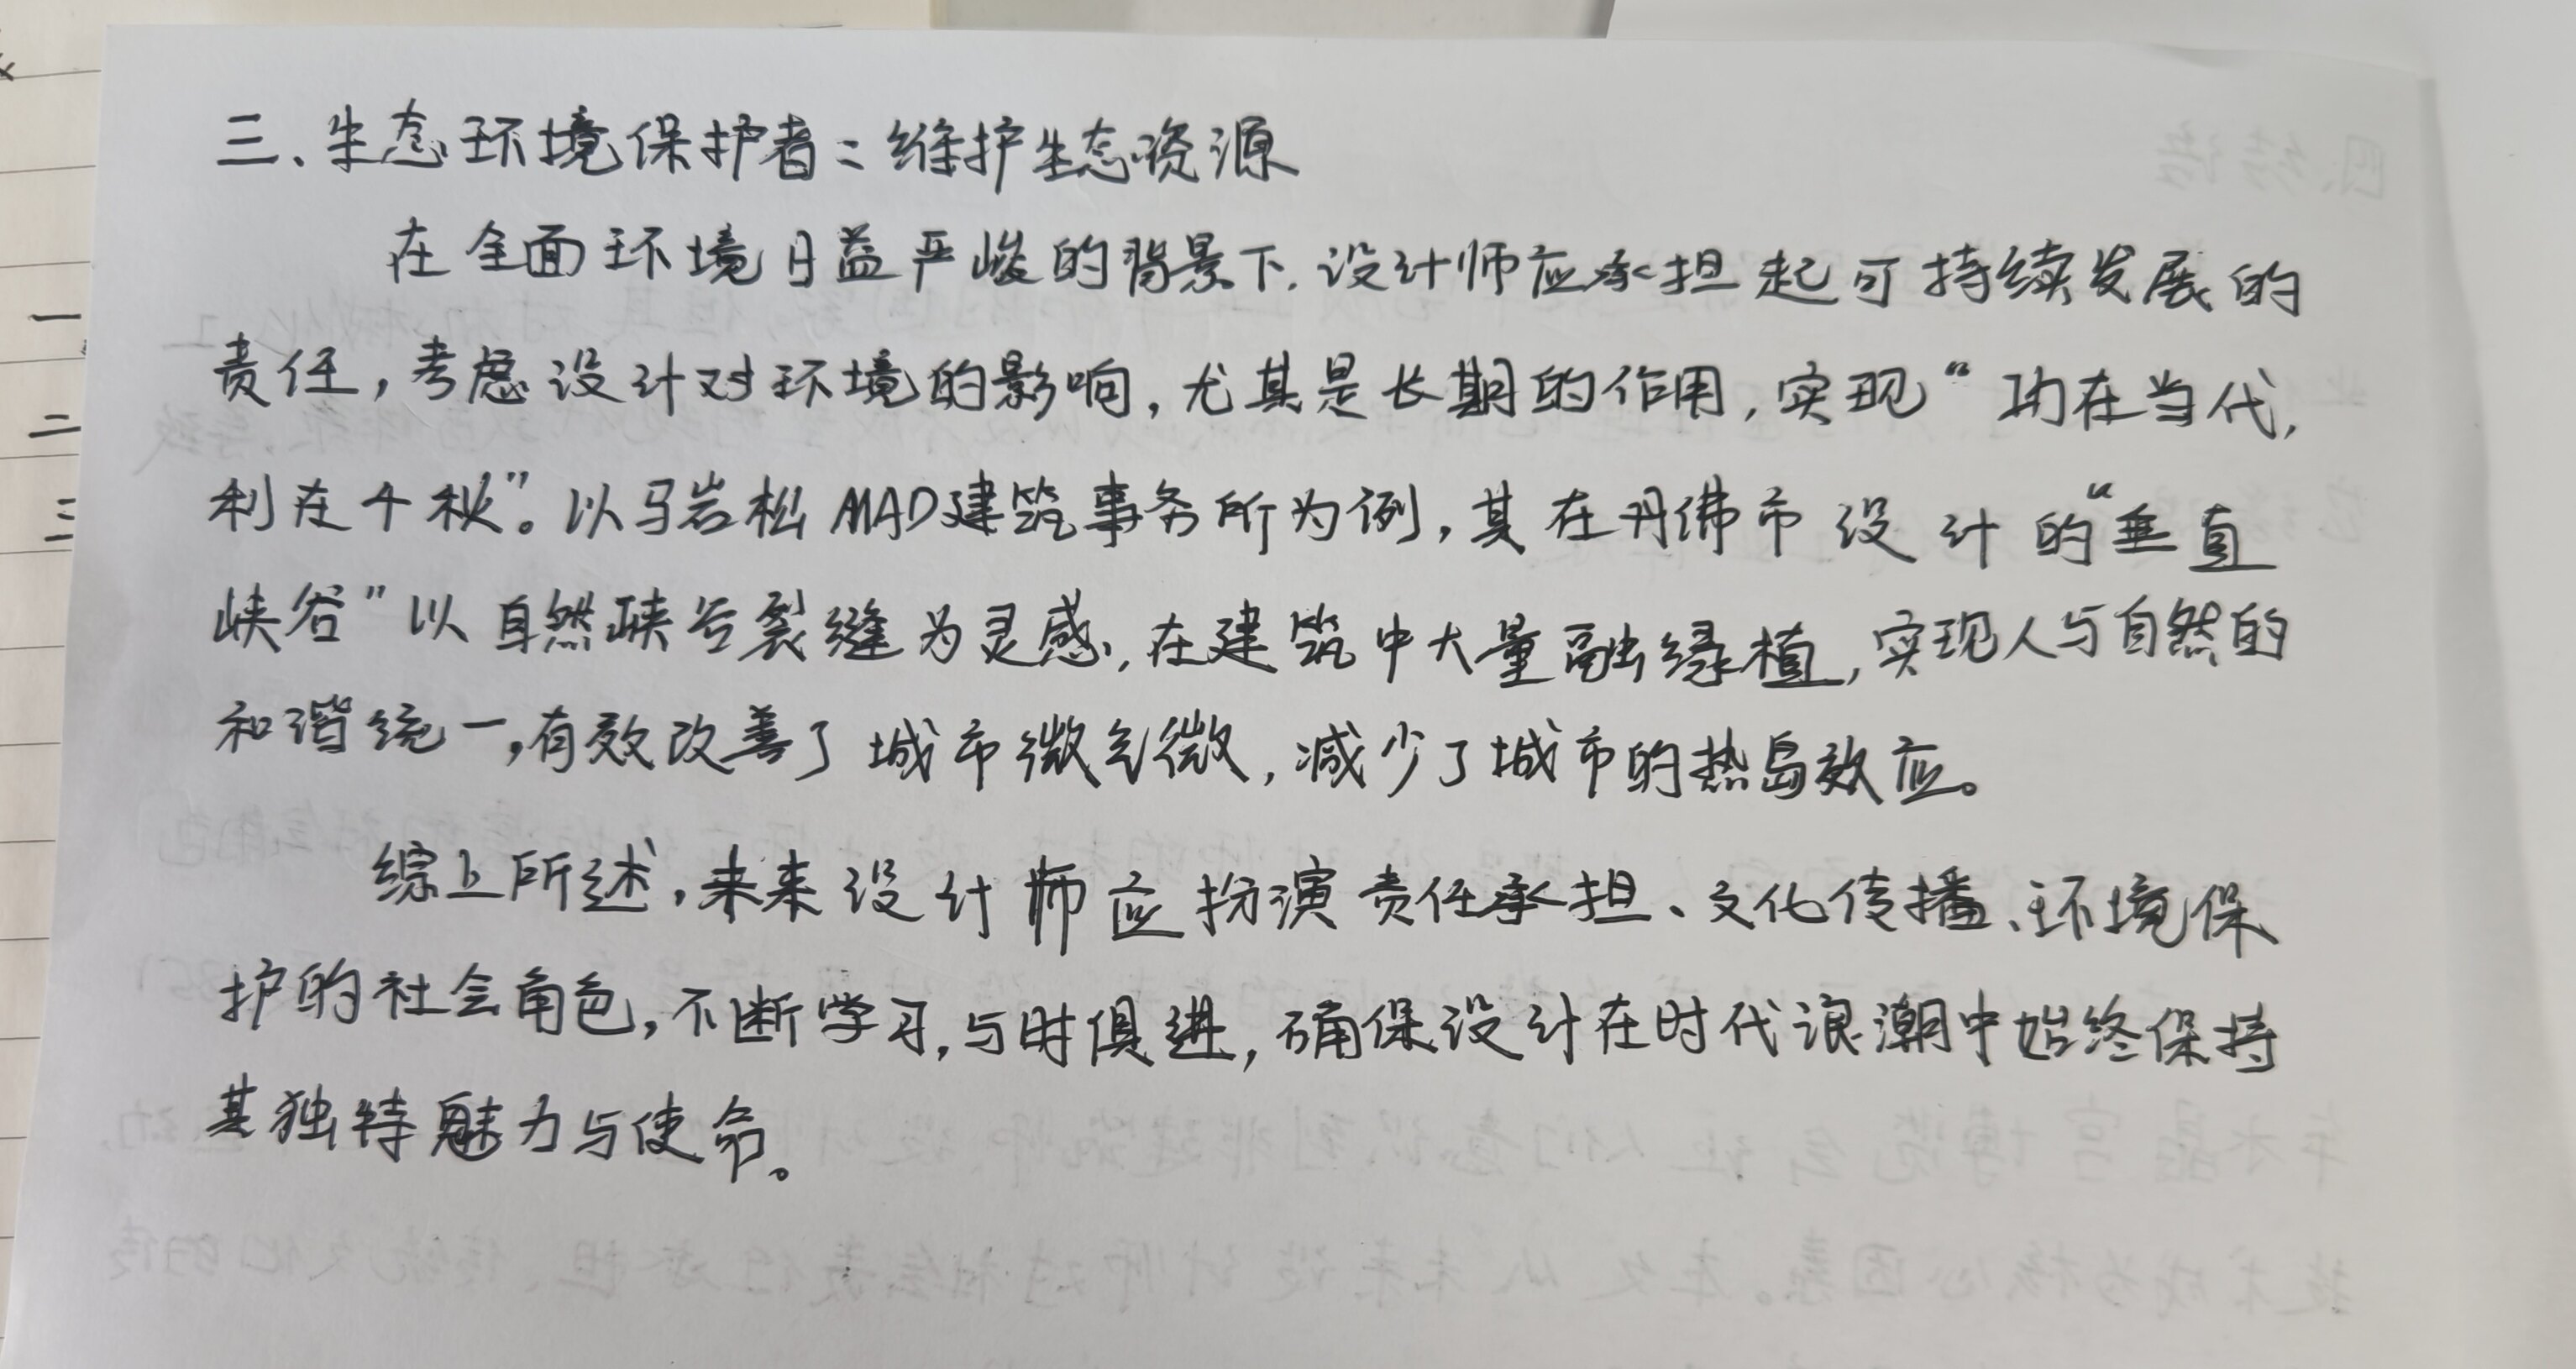 三、生态环境保护者：维护生态资源
在全面环境日益严峻的背景下，设计师应承担起可持续发展的
责任，考虑设计对环境的影响，尤其是长期的作用，实现“功在当代，
利在千秋”。以马岩松MAD建筑事务所为例，其在丹佛市设计的“垂直
峡谷”以自然峡谷裂缝为灵感，在建筑中大量融绿植，实现人与自然的
和谐统一，有效改善了城市微气微，减少了城市的热岛效应。
综上所述，未来设计师应扮演责任承担、文化传播、环境保
护的社会角色，不断学习，与时俱进，确保设计在时代浪潮中始终保持
其独特魅力与使命。
一
二
三